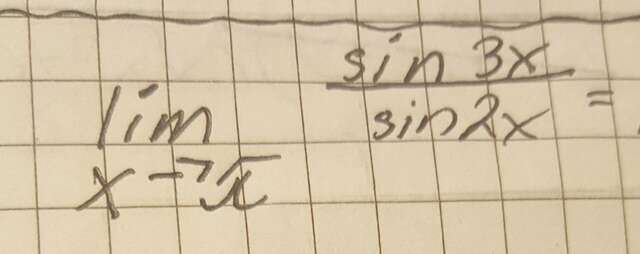 lim x→π sin 3x / sin 2x =